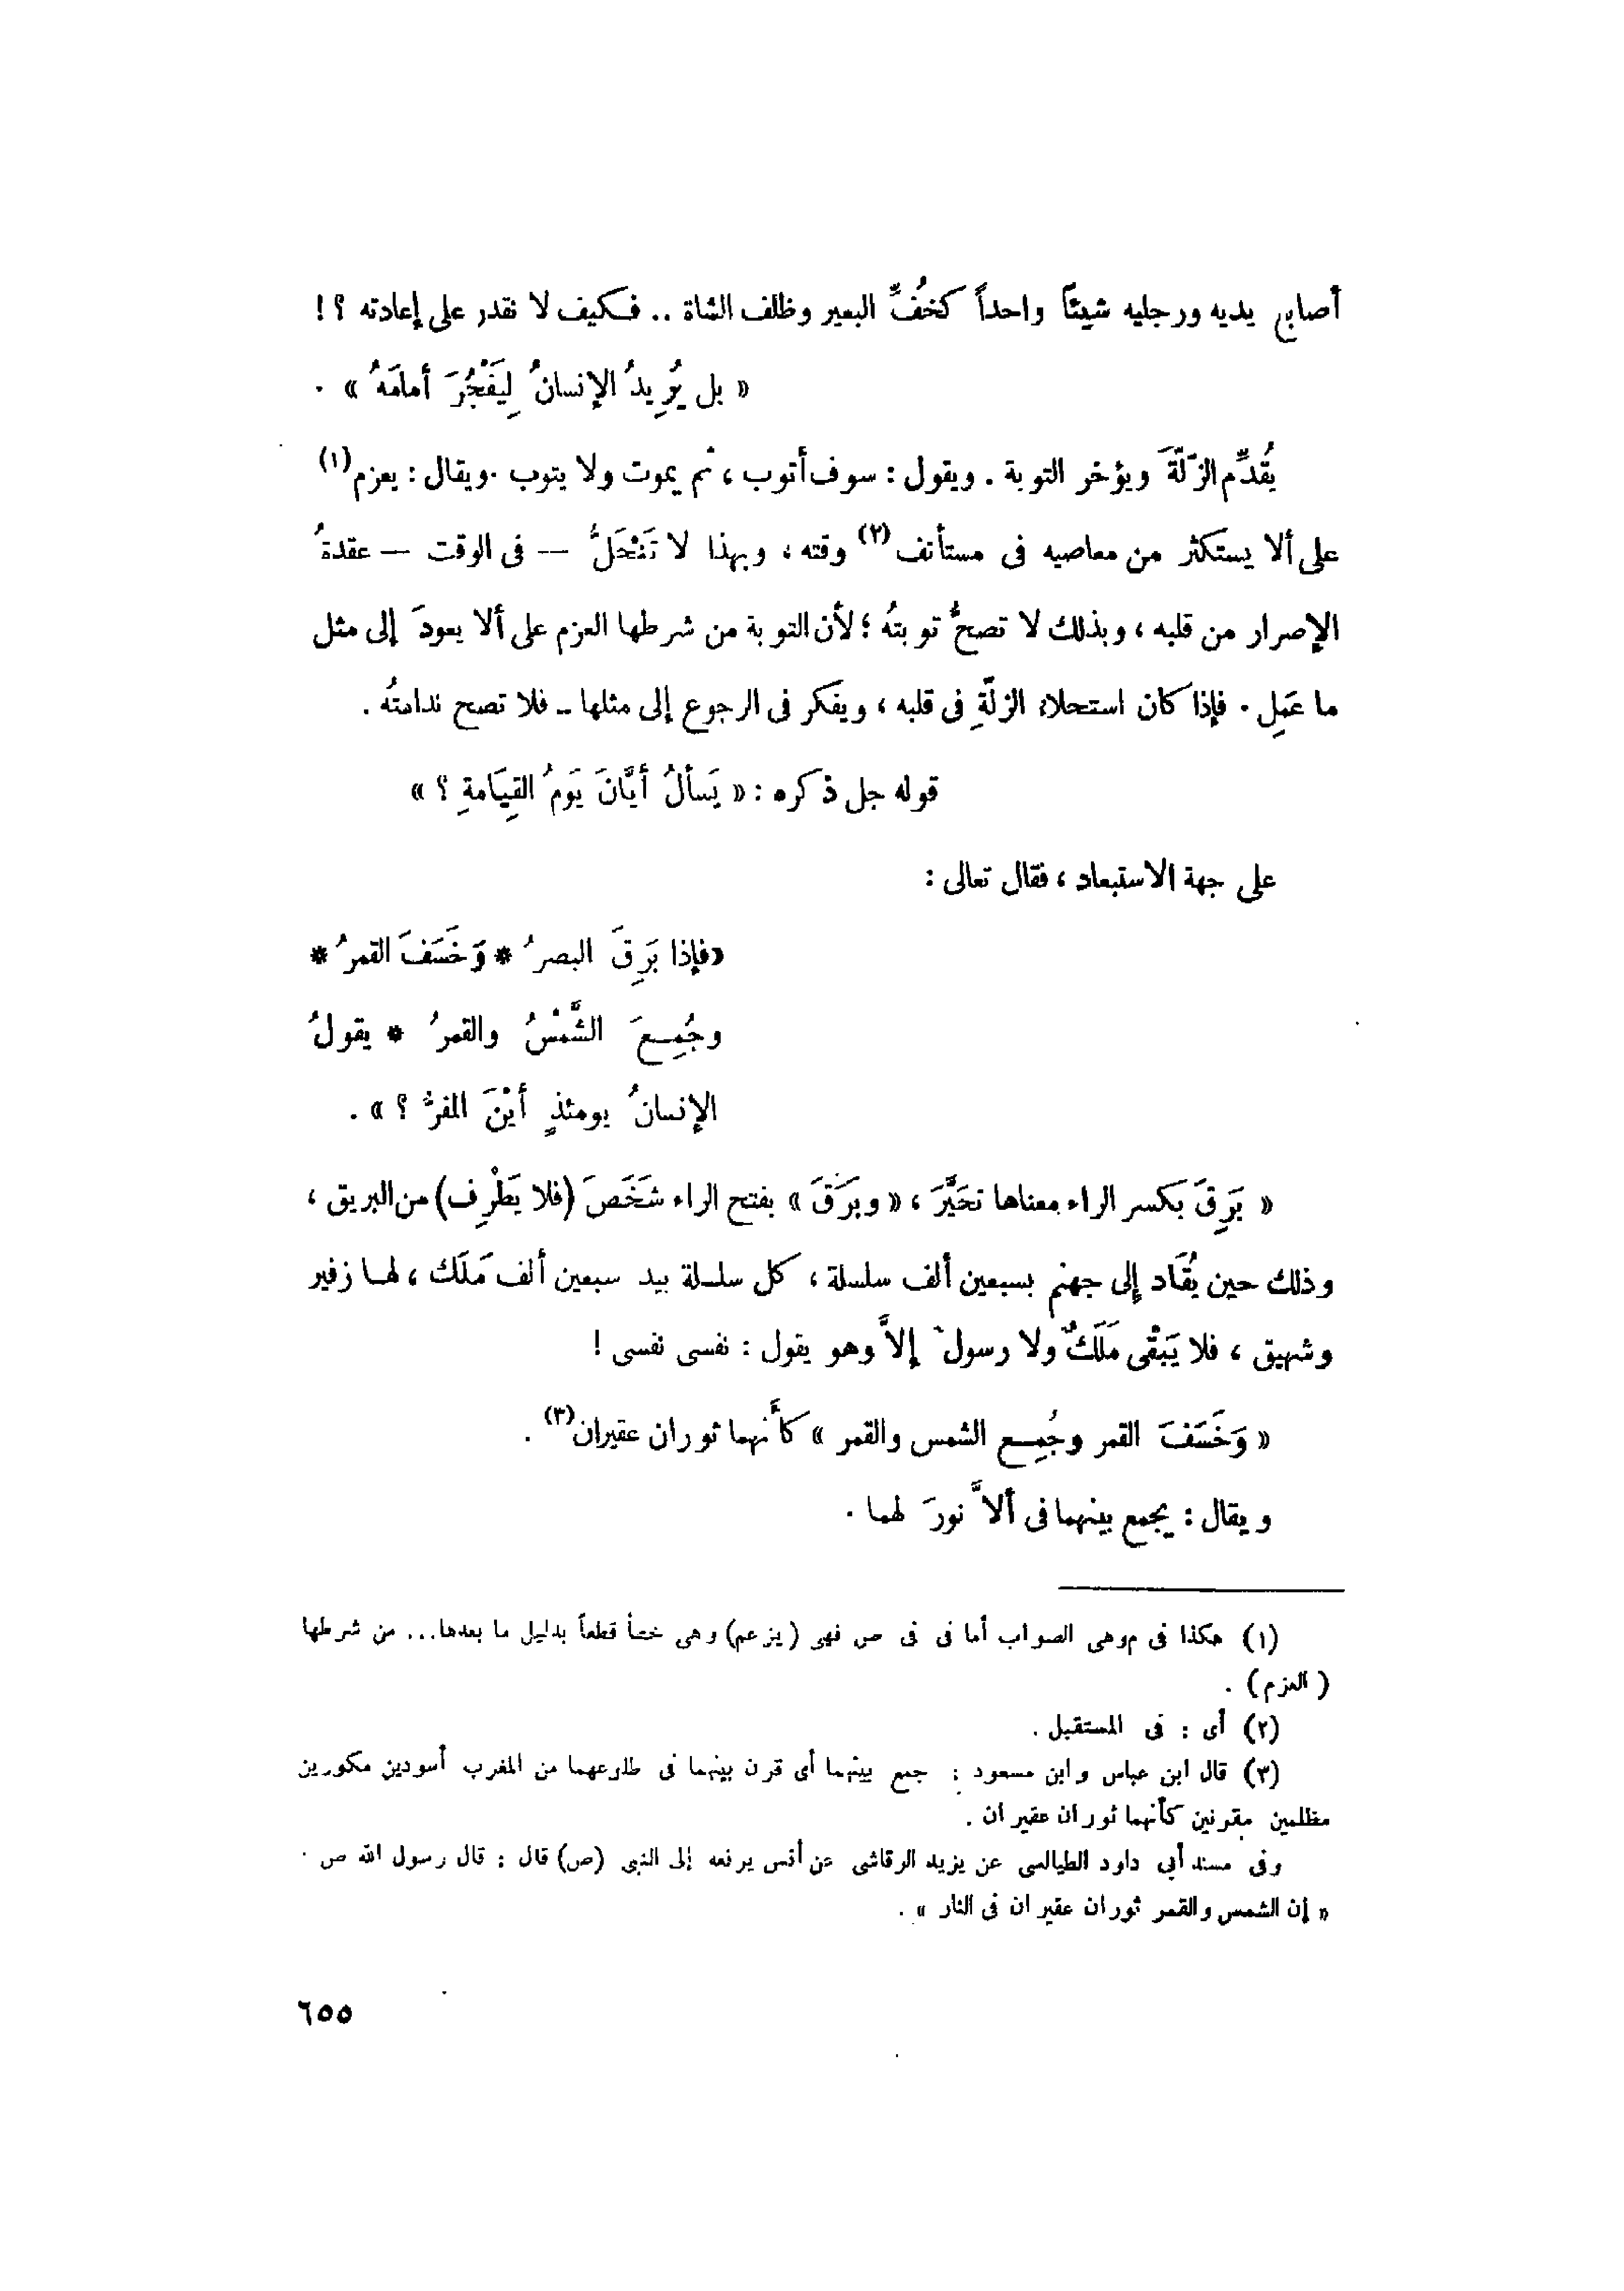 أصابع يديه ورجليه شيئاً واحداً كخُفِّ البعير وظلف الشاة .. فكيف لا نقدر على إعادته ؟ !
« بل يُرِيدُ الإنسانُ لِيَفْجُرَ أمامَهُ » .
يُقدِّم الزّلّةَ ويؤخر التوبة . ويقول : سوف أتوب ، ثم يموت ولا يتوب . ويقال : يعزم(١)
على ألا يستكثر من معاصيه فى مستأنف(٢) وقته ، وبهذا لا تَنْحَلُّ — فى الوقت — عقدةُ
الإصرار من قلبه ، وبذلك لا تصحُّ توبتُه ؛ لأن التوبة من شرطها العزم على ألا يعودَ إلى مثل
ما عَمِل . فإذا كان استحلاءُ الزلّةِ فى قلبه ، ويفكر فى الرجوع إلى مثلها – فلا تصح ندامتُه .
قوله جل ذكره : « يَسألُ أيَّانَ يَومُ القِيَامةِ ؟ »
على جهة الاستبعاد ، فقال تعالى :
«فإذا بَرِقَ البصرُ * وَخَسَفَ القمرُ *
وجُمِعَ الشَّمْسُ والقمرُ * يقولُ
الإنسانُ يومئذٍ أيْنَ المفرُّ ؟ » .
« بَرِقَ بكسر الراء معناها تحَيَّرَ ، « وبَرَقَ » بفتح الراء شَخَصَ (فلا يَطْرِف) من البريق ،
وذلك حين يُقَاد إلى جهنم بسبعين ألف سلسلة ، كل سلسلة بيد سبعين ألف مَلَك ، لها زفير
وشهيق ، فلا يَبْقَى مَلَكٌ ولا رسول إلاَّ وهو يقول : نفسى نفسى !
« وَخَسَفَ القمر وجُمِع الشمس والقمر » كأنهما ثوران عقيران(٣) .
ويقال : يجمع بينهما فى ألاَّ نورَ لهما .
(١) هكذا فى م وهى الصواب أما فى فى ص فهى (يزعم) وهى خطأ قطعاً بدليل ما بعدها... من شرطها
( العزم ) .
(٢) أى : فى المستقبل .
(٣) قال ابن عباس وابن مسعود : جمع بينهما أى قرن بينهما فى طلوعهما من المغرب أسودين مكورين
مظلمين مقرنين كأنهما ثوران عقيران .
وفى مسند أبى داود الطيالسى عن يزيد الرقاشى عن أنس يرفعه إلى النبى (ص) قال : قال رسول الله ص .
« إن الشمس والقمر ثوران عقيران فى النار » .
٦٥٥